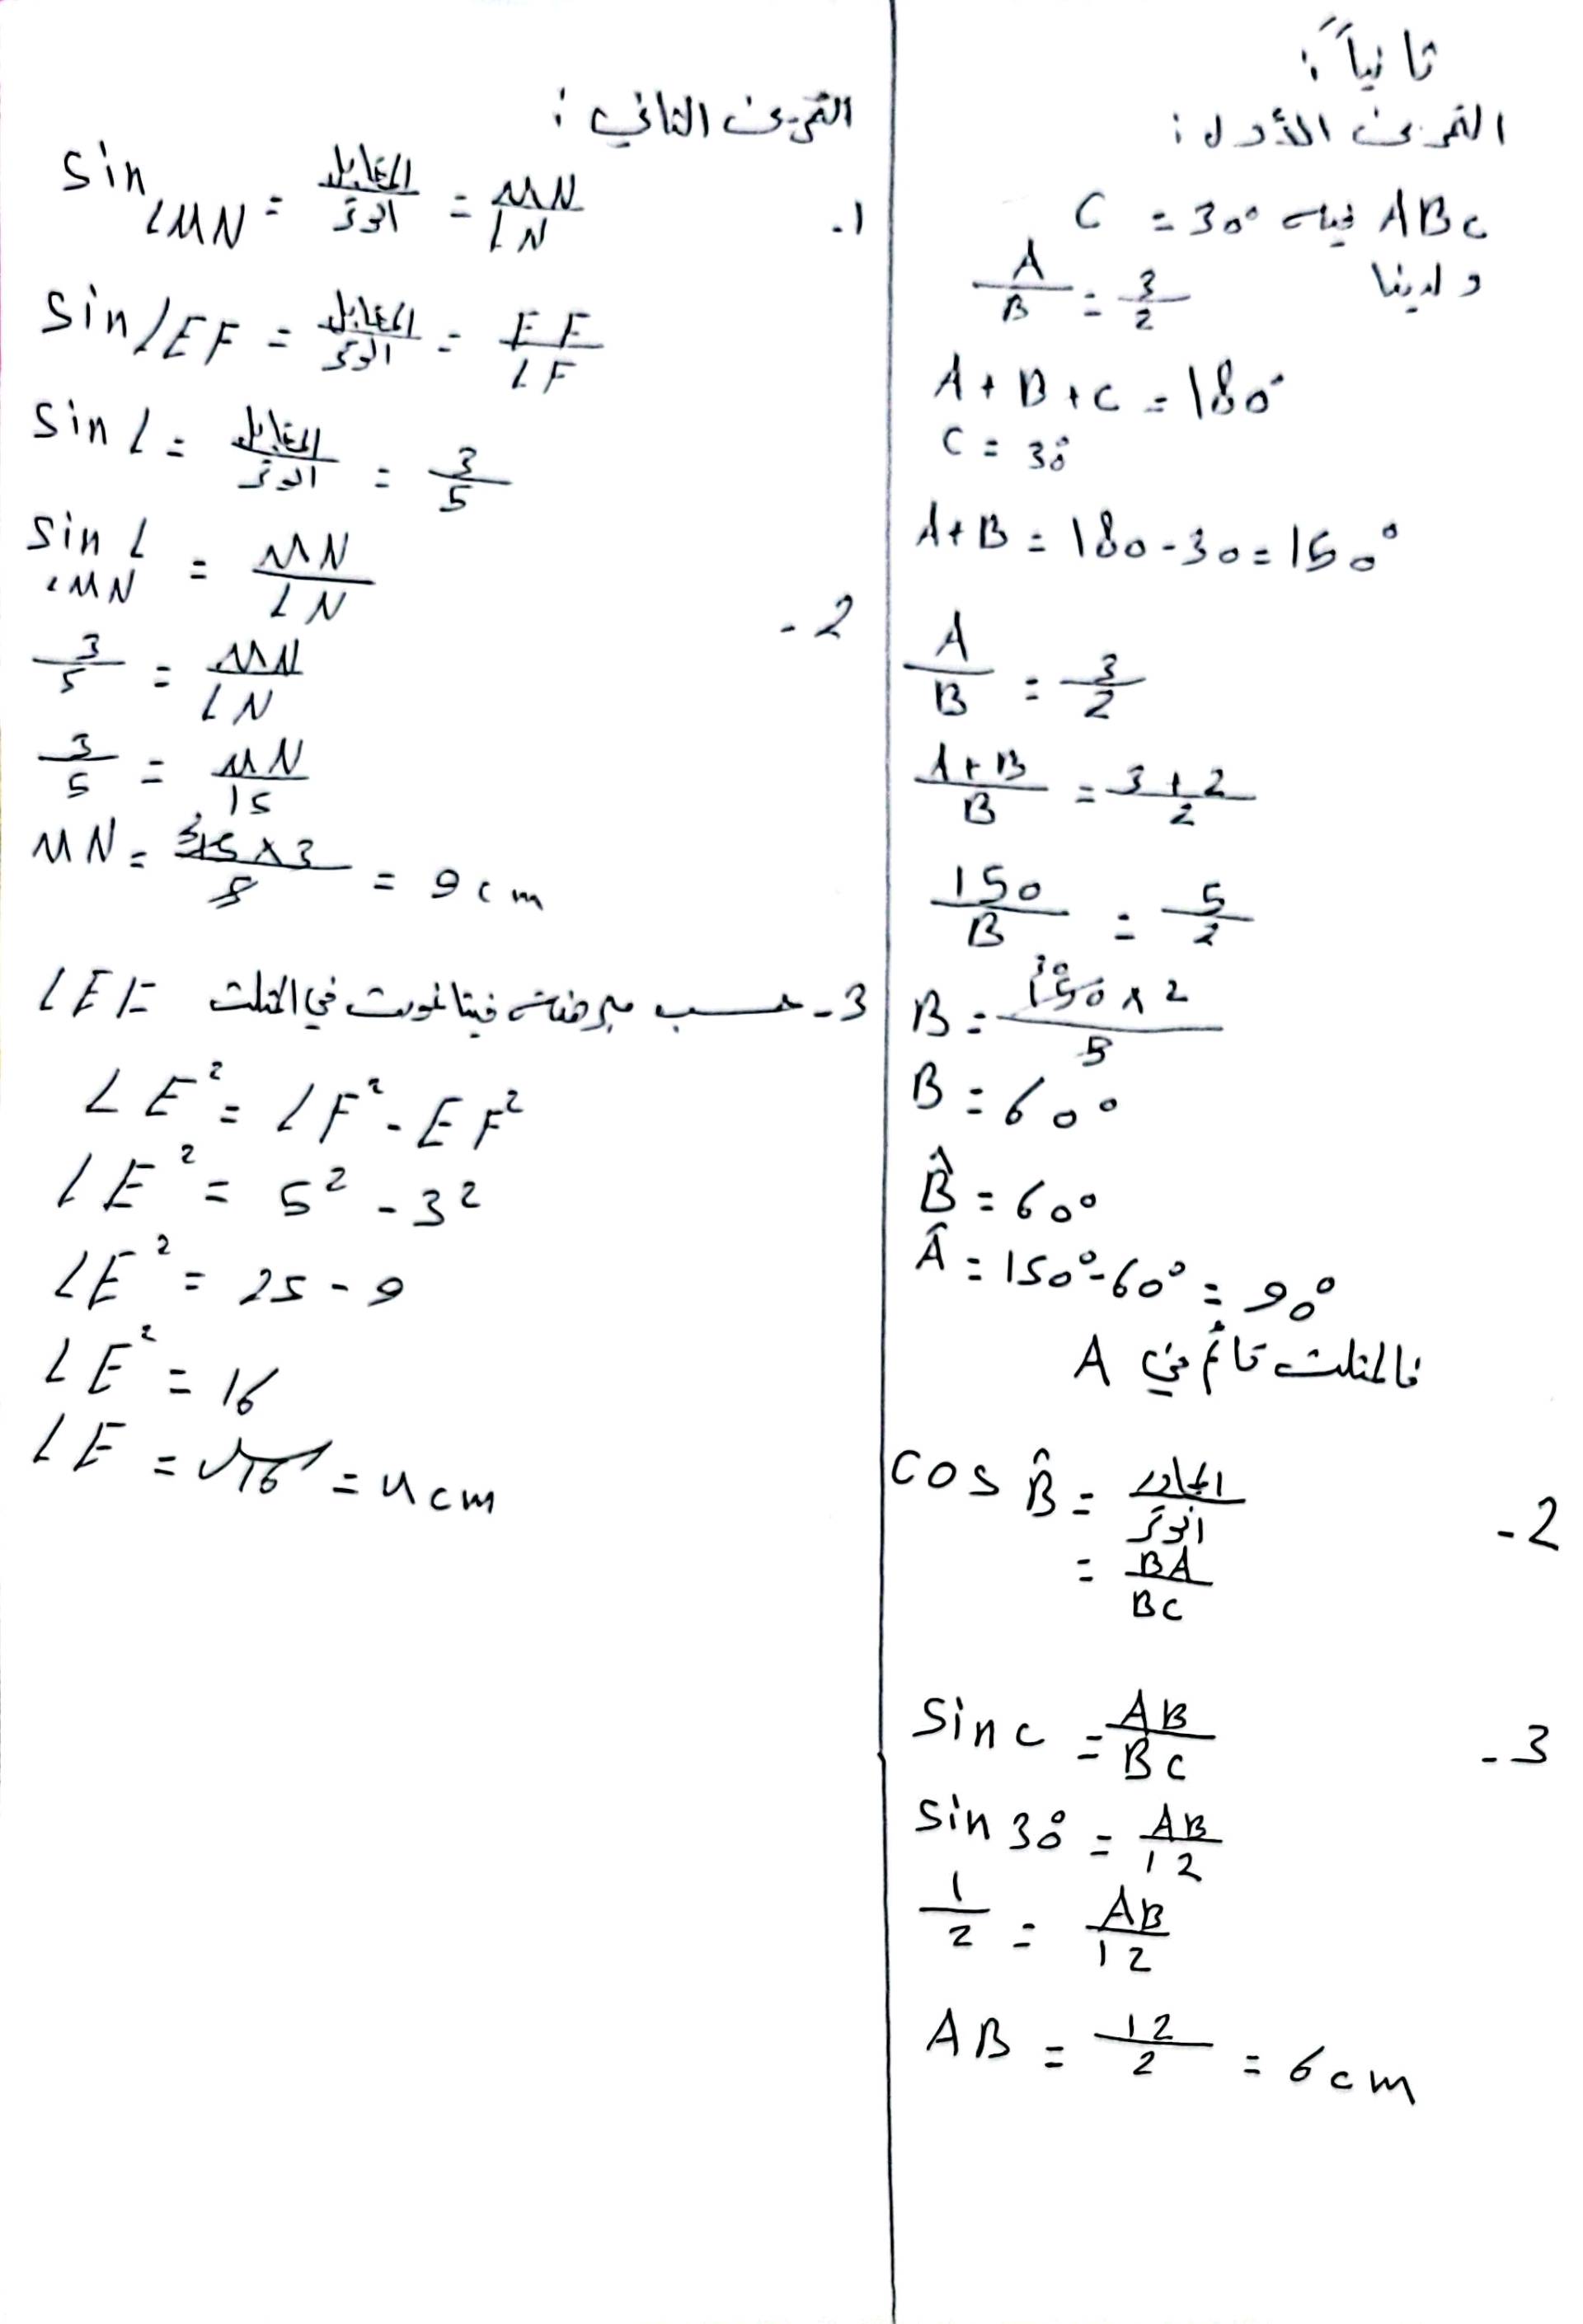 ثانياً:
التمرين الأول:
ABC فيه C = 30°
ولدينا A/B = 3/2
A + B + C = 180°
C = 30°
A + B = 180 - 30 = 150°
A/B = 3/2
A+B/B = 3+2/2
150/B = 5/2
B = 150×2/5 30
B = 60°
B̂ = 60°
Â = 150° - 60° = 90°
فالمثلث قائم في A
2- cos B̂ = المجاور/الوتر
= BA/BC
3- sin C = AB/BC
sin 30° = AB/12
1/2 = AB/12
AB = 12/2 = 6 cm
التمرين الثاني:
1. sin LMN = المقابل/الوتر = MN/LN
sin LEF = المقابل/الوتر = EF/LF
sin L = المقابل/الوتر = 3/5
2- sin L LMN = MN/LN
3/5 = MN/LN
3/5 = MN/15
MN = 15×3/5 3 = 9 cm
3- حسب مبرهنة فيتاغورث في المثلث LEF
LE² = LF² - EF²
LE² = 5² - 3²
LE² = 25 - 9
LE² = 16
LE = √16 = 4 cm